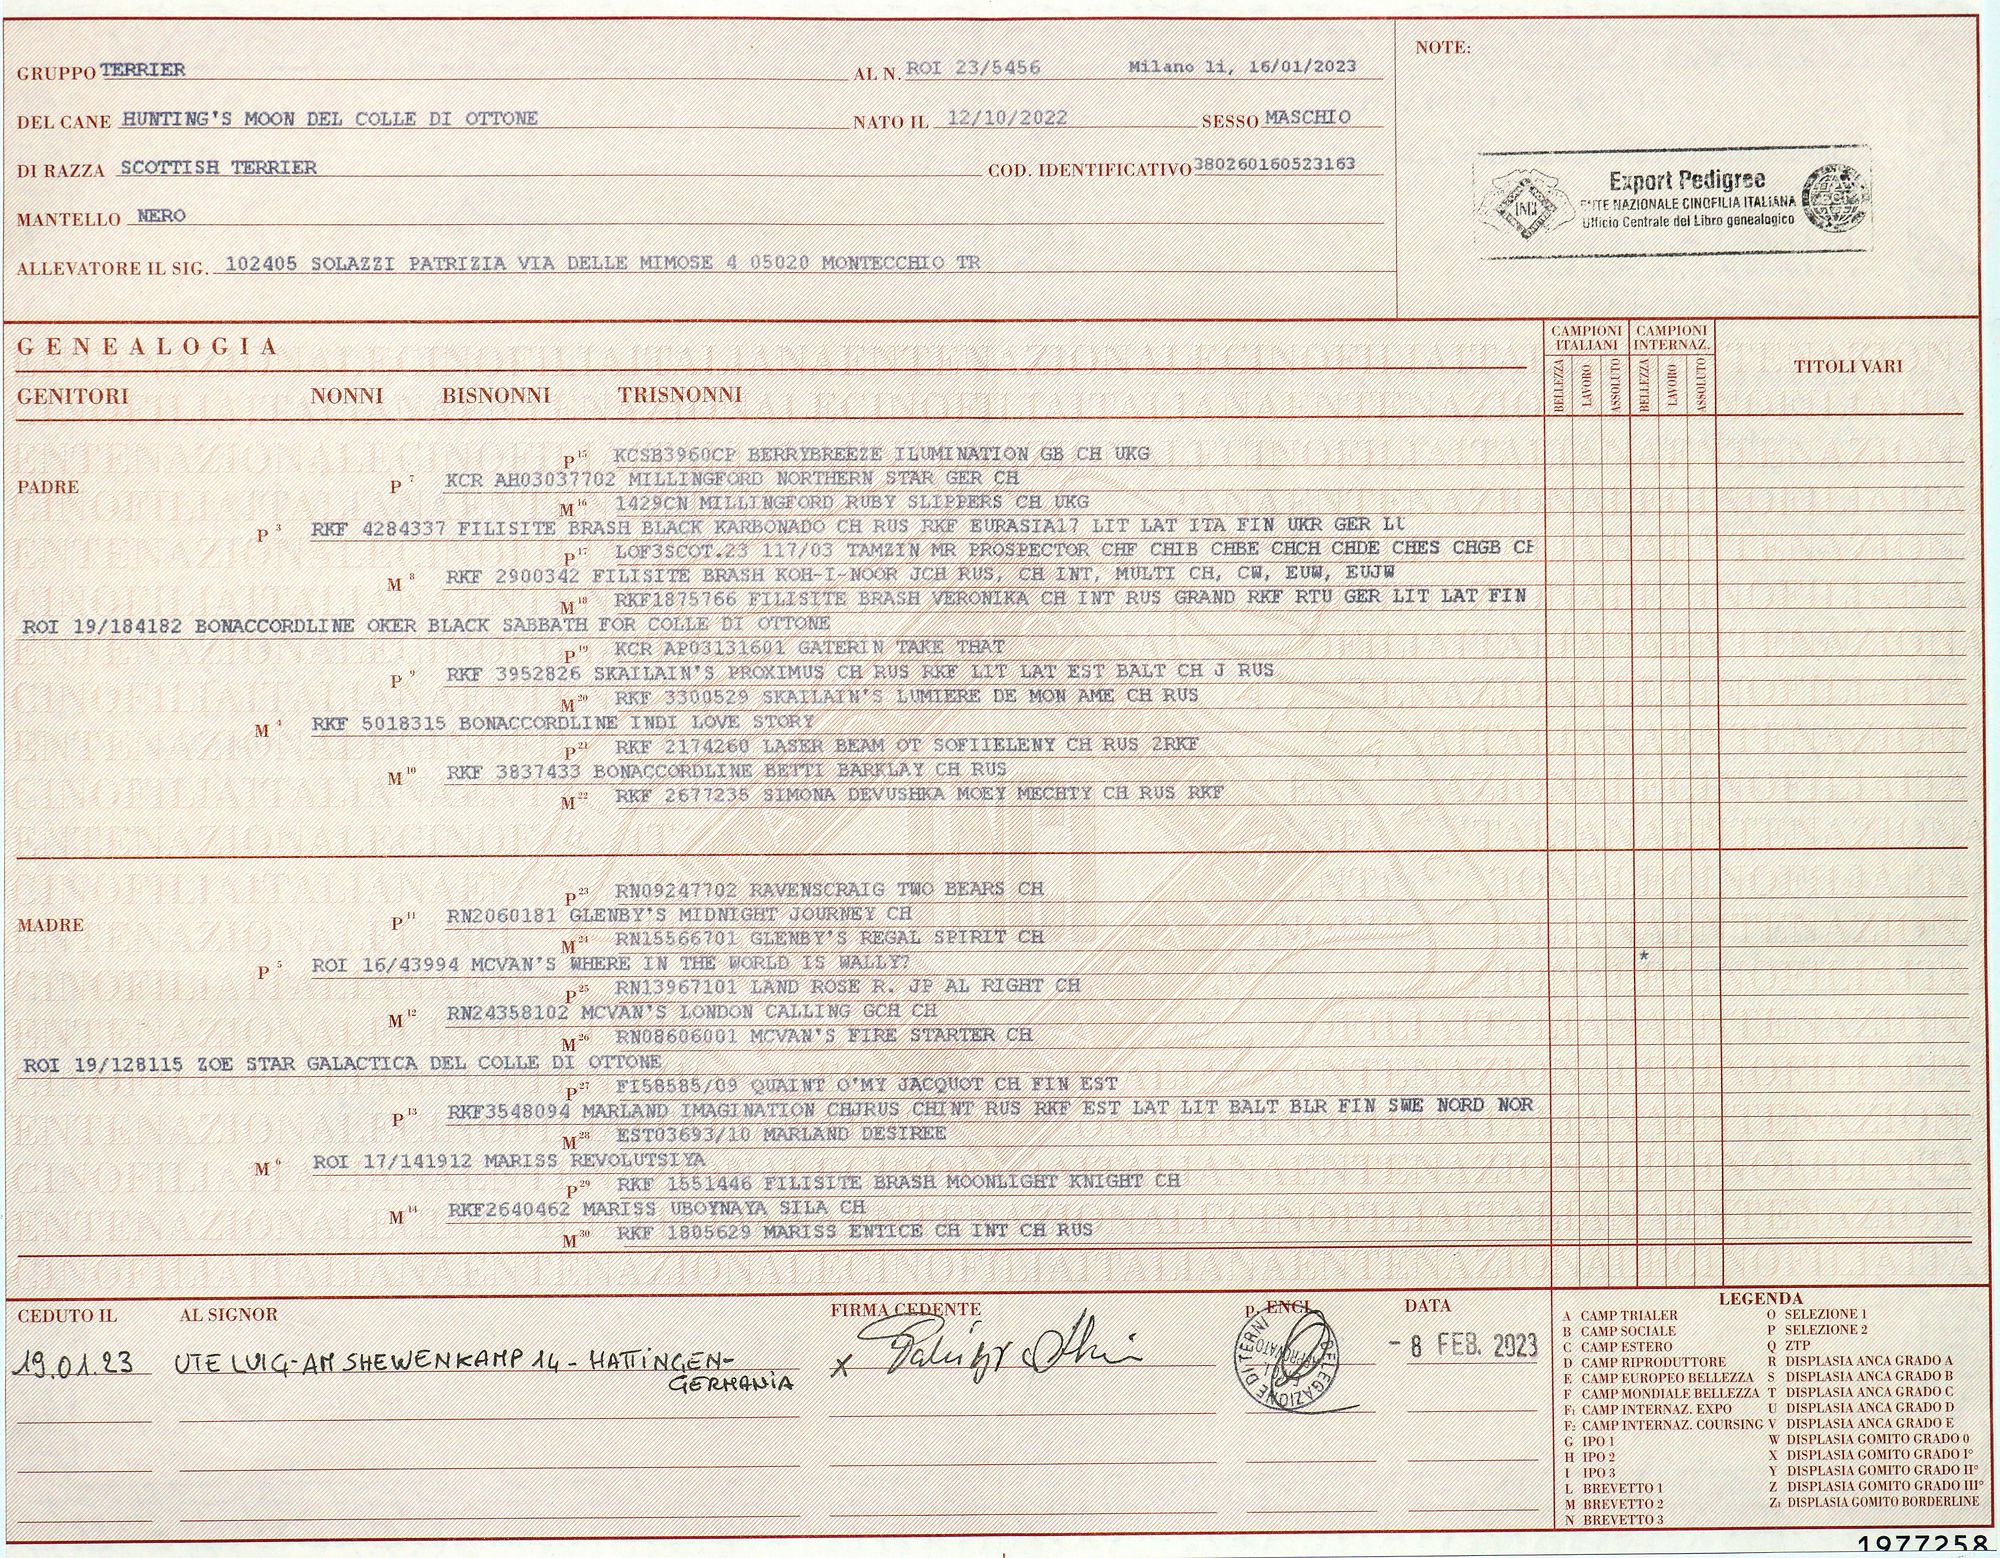 NOTE:
GRUPPO TERRIER AL N. ROI 23/5456 Milano li, 16/01/2023
DEL CANE HUNTING'S MOON DEL COLLE DI OTTONE NATO IL 12/10/2022 SESSO MASCHIO
DI RAZZA SCOTTISH TERRIER COD. IDENTIFICATIVO 380260160523163
MANTELLO NERO
ALLEVATORE IL SIG. 102405 SOLAZZI PATRIZIA VIA DELLE MIMOSE 4 05020 MONTECCHIO TR
Export Pedigree
ENTE NAZIONALE CINOFILIA ITALIANA
Ufficio Centrale del Libro genealogico
GENEALOGIA
CAMPIONI ITALIANI CAMPIONI INTERNAZ.
BELLEZZA LAVORO ASSOLUTO BELLEZZA LAVORO ASSOLUTO
TITOLI VARI
GENITORI NONNI BISNONNI TRISNONNI
P 15 KCSB3960CP BERRYBREEZE ILUMINATION GB CH UKG
PADRE P 7 KCR AH03037702 MILLINGFORD NORTHERN STAR GER CH
M 16 1429CN MILLINGFORD RUBY SLIPPERS CH UKG
P 3 RKF 4284337 FILISITE BRASH BLACK KARBONADO CH RUS RKF EURASIA17 LIT LAT ITA FIN UKR GER LU
P 17 LOF3SCOT.23 117/03 TAMZIN MR PROSPECTOR CHF CHIB CHBE CHCH CHDE CHES CHGB CH
M 8 RKF 2900342 FILISITE BRASH KOH-I-NOOR JCH RUS, CH INT, MULTI CH, CW, EUW, EUJW
M 18 RKF1875766 FILISITE BRASH VERONIKA CH INT RUS GRAND RKF RTU GER LIT LAT FIN
ROI 19/184182 BONACCORDLINE OKER BLACK SABBATH FOR COLLE DI OTTONE
P 19 KCR AP03131601 GATERIN TAKE THAT
P 9 RKF 3952826 SKAILAIN'S PROXIMUS CH RUS RKF LIT LAT EST BALT CH J RUS
M 20 RKF 3300529 SKAILAIN'S LUMIERE DE MON AME CH RUS
M 4 RKF 5018315 BONACCORDLINE INDI LOVE STORY
P 21 RKF 2174260 LASER BEAM OT SOFIIELENY CH RUS 2RKF
M 10 RKF 3837433 BONACCORDLINE BETTI BARKLAY CH RUS
M 22 RKF 2677235 SIMONA DEVUSHKA MOEY MECHTY CH RUS RKF
P 23 RN09247702 RAVENSCRAIG TWO BEARS CH
MADRE P 11 RN2060181 GLENBY'S MIDNIGHT JOURNEY CH
M 24 RN15566701 GLENBY'S REGAL SPIRIT CH
P 5 ROI 16/43994 MCVAN'S WHERE IN THE WORLD IS WALLY? *
P 25 RN13967101 LAND ROSE R. JP AL RIGHT CH
M 12 RN24358102 MCVAN'S LONDON CALLING GCH CH
M 26 RN08606001 MCVAN'S FIRE STARTER CH
ROI 19/128115 ZOE STAR GALACTICA DEL COLLE DI OTTONE
P 27 FI58585/09 QUAINT O'MY JACQUOT CH FIN EST
P 13 RKF3548094 MARLAND IMAGINATION CHJRUS CHINT RUS RKF EST LAT LIT BALT BLR FIN SWE NORD NOR
M 28 EST03693/10 MARLAND DESIREE
M 6 ROI 17/141912 MARISS REVOLUTSIYA
P 29 RKF 1551446 FILISITE BRASH MOONLIGHT KNIGHT CH
M 14 RKF2640462 MARISS UBOYNAYA SILA CH
M 30 RKF 1805629 MARISS ENTICE CH INT CH RUS
CEDUTO IL AL SIGNOR FIRMA CEDENTE p. ENCI DATA
19.01.23 UTE LUIG-AM SHEWENKAMP 14 - HATTINGEN- X - 8 FEB. 2023
GERMANIA
DELEGAZIONE DI TERNI
LEGENDA
A CAMP TRIALER O SELEZIONE 1
B CAMP SOCIALE P SELEZIONE 2
C CAMP ESTERO Q ZTP
D CAMP RIPRODUTTORE R DISPLASIA ANCA GRADO A
E CAMP EUROPEO BELLEZZA S DISPLASIA ANCA GRADO B
F CAMP MONDIALE BELLEZZA T DISPLASIA ANCA GRADO C
F1 CAMP INTERNAZ. EXPO U DISPLASIA ANCA GRADO D
F2 CAMP INTERNAZ. COURSING V DISPLASIA ANCA GRADO E
G IPO 1 W DISPLASIA GOMITO GRADO 0
H IPO 2 X DISPLASIA GOMITO GRADO I°
I IPO 3 Y DISPLASIA GOMITO GRADO II°
L BREVETTO 1 Z DISPLASIA GOMITO GRADO III°
M BREVETTO 2 Z1 DISPLASIA GOMITO BORDERLINE
N BREVETTO 3
1977258